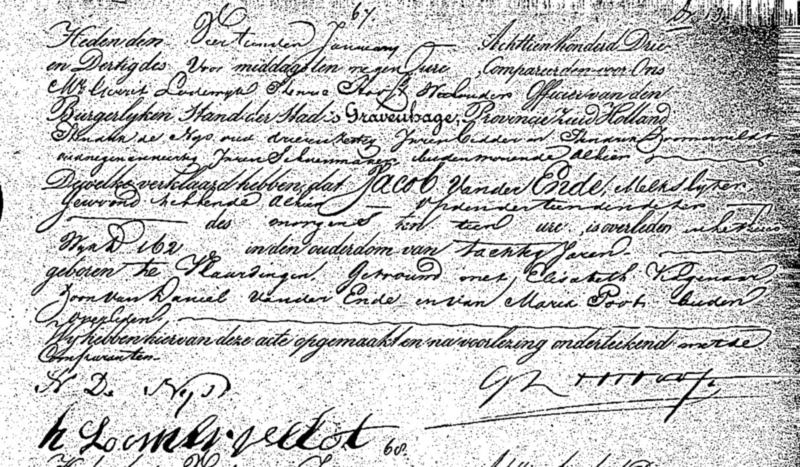 67.
Heden den Veertienden January Achttienhonderd Drie
en Dertig des Voormiddags ten negen Ure, Compareerden voor Ons
Mr Lodewyk Wethouder Officier van den
Burgerlyken Stand der Stad 's Gravenhage, Provincie Zuid Holland
Hendrik de Nys oud drieenzestig Jaren en Hendrik
oud negenenveertig Jaren Schoenmaker, beiden wonende alhier
Dewelke verklaard hebben, dat Jacob Vander Ende, Melkslyter
gewoond hebbende alhier op den dertienden dezer
des morgens ten tien ure, is overleden in het huis
Wyk D 162 in den ouderdom van tachtig Jaren
geboren te Vlaardingen. Getrouwd met Elisabeth
Zoon van Daniel Vander Ende en van Maria Poot. beiden
overleden.
Wy hebben hiervan deze acte opgemaakt en na voorlezing onderteekend met de
Comparanten.
H De Nys
h
68.
Heden den Achttienhonderd